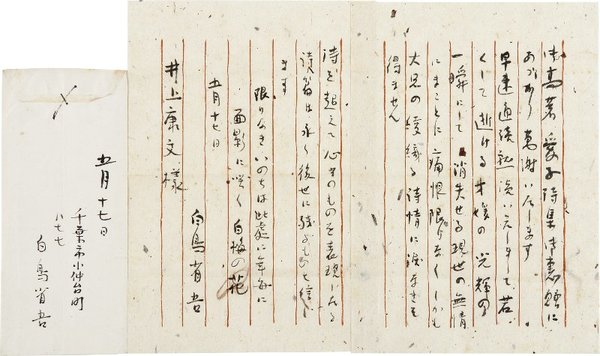 御高著 愛子詩集御恵贈に
あづかり 萬謝いたします
早速通読熟読いたしまして若
くして逝ける才媛の光輝の
一瞬にして消失せる現世の無情
にまことに痛恨限りなく しかも
大兄の綾織る詩情に涙なきを
得ません
詩を超えて 心そのものを表現したる
詩篇は永く後世に残るものと信じ
ます
限りなきいのちは此処に年毎に
面影に咲く白梅の花
五月十七日
白鳥省吾
井上康文様
五月十七日
千葉市小仲台町
八七七
白鳥省吾